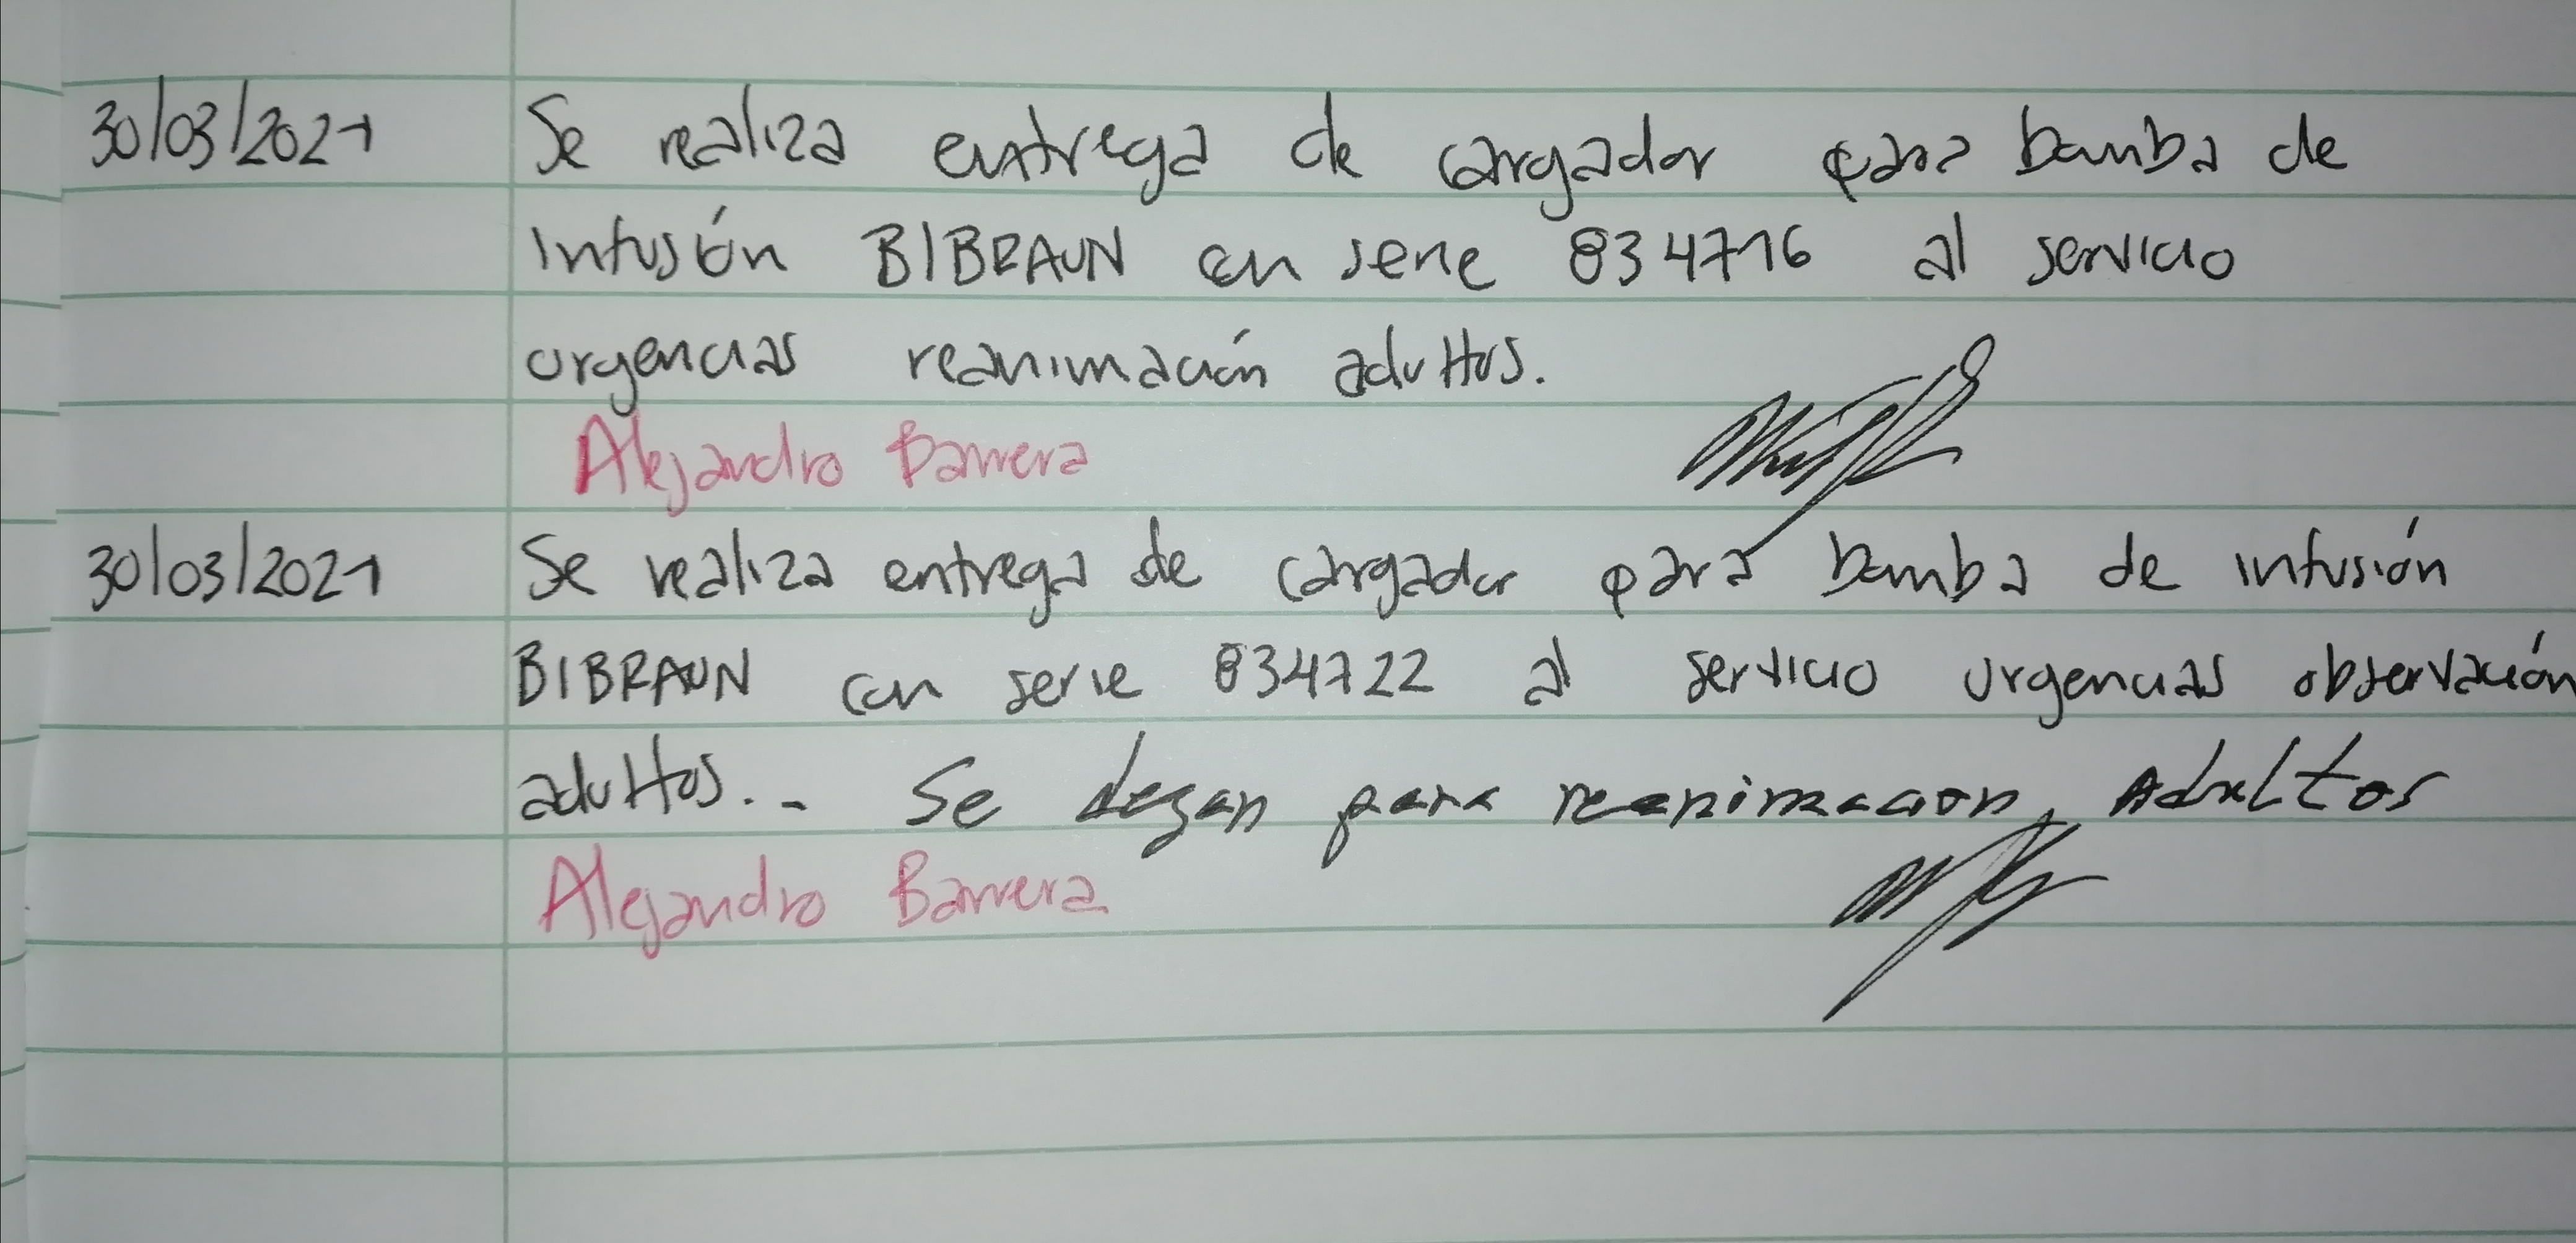 30/03/2021 Se realiza entrega de cargador para bomba de
Infusión BIBRAUN con serie 834716 al servicio
urgencias reanimación adultos.
Alejandro Barrera
30/03/2021 Se realiza entrega de cargador para bomba de infusión
BIBRAUN con serie 834722 al servicio urgencias observación
adultos.. - Se degan para reanimacion, Adultos
Alejandro Barrera